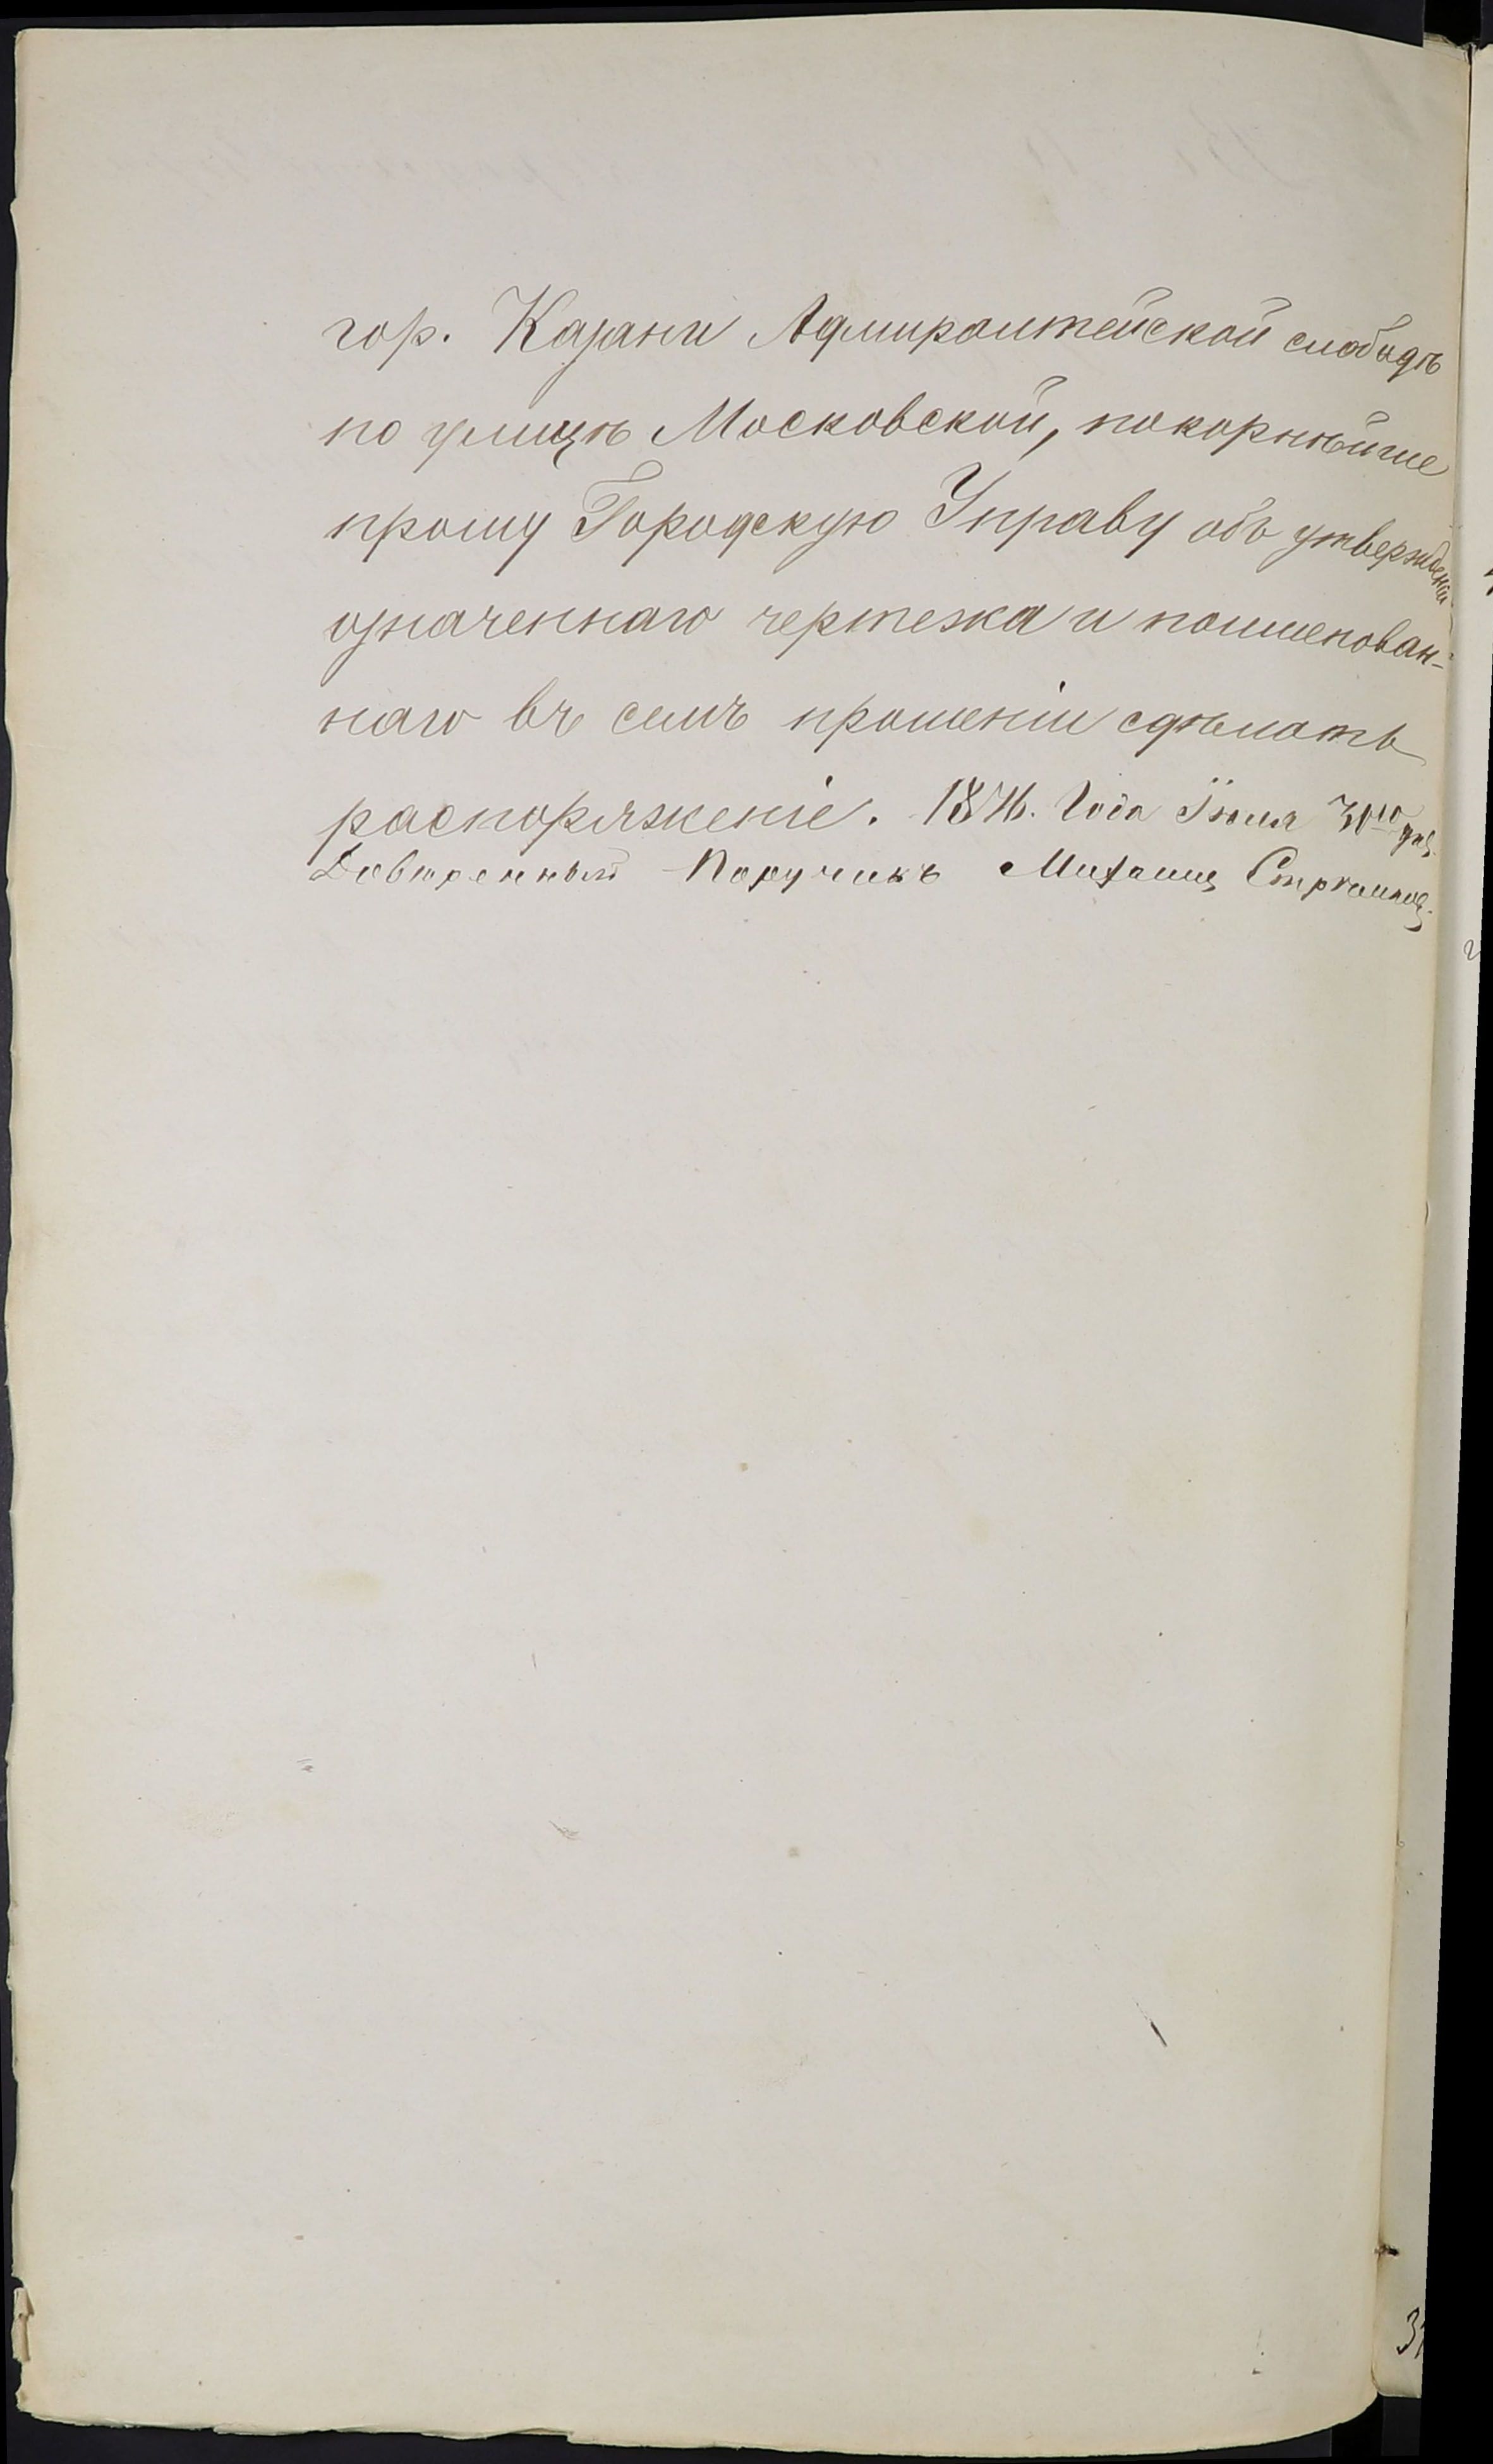 гор. Казани Адмиралтейской слободѣ
по улицѣ Московской, покорнѣйше
прошу Городскую Управу объ утвержденіи
означеннаго чертежа и поименован-
наго въ семъ прошеніи сдѣлать
распоряженіе. 1876. Года Іюля 30го дня
Довѣренный Поручикъ Михаилъ